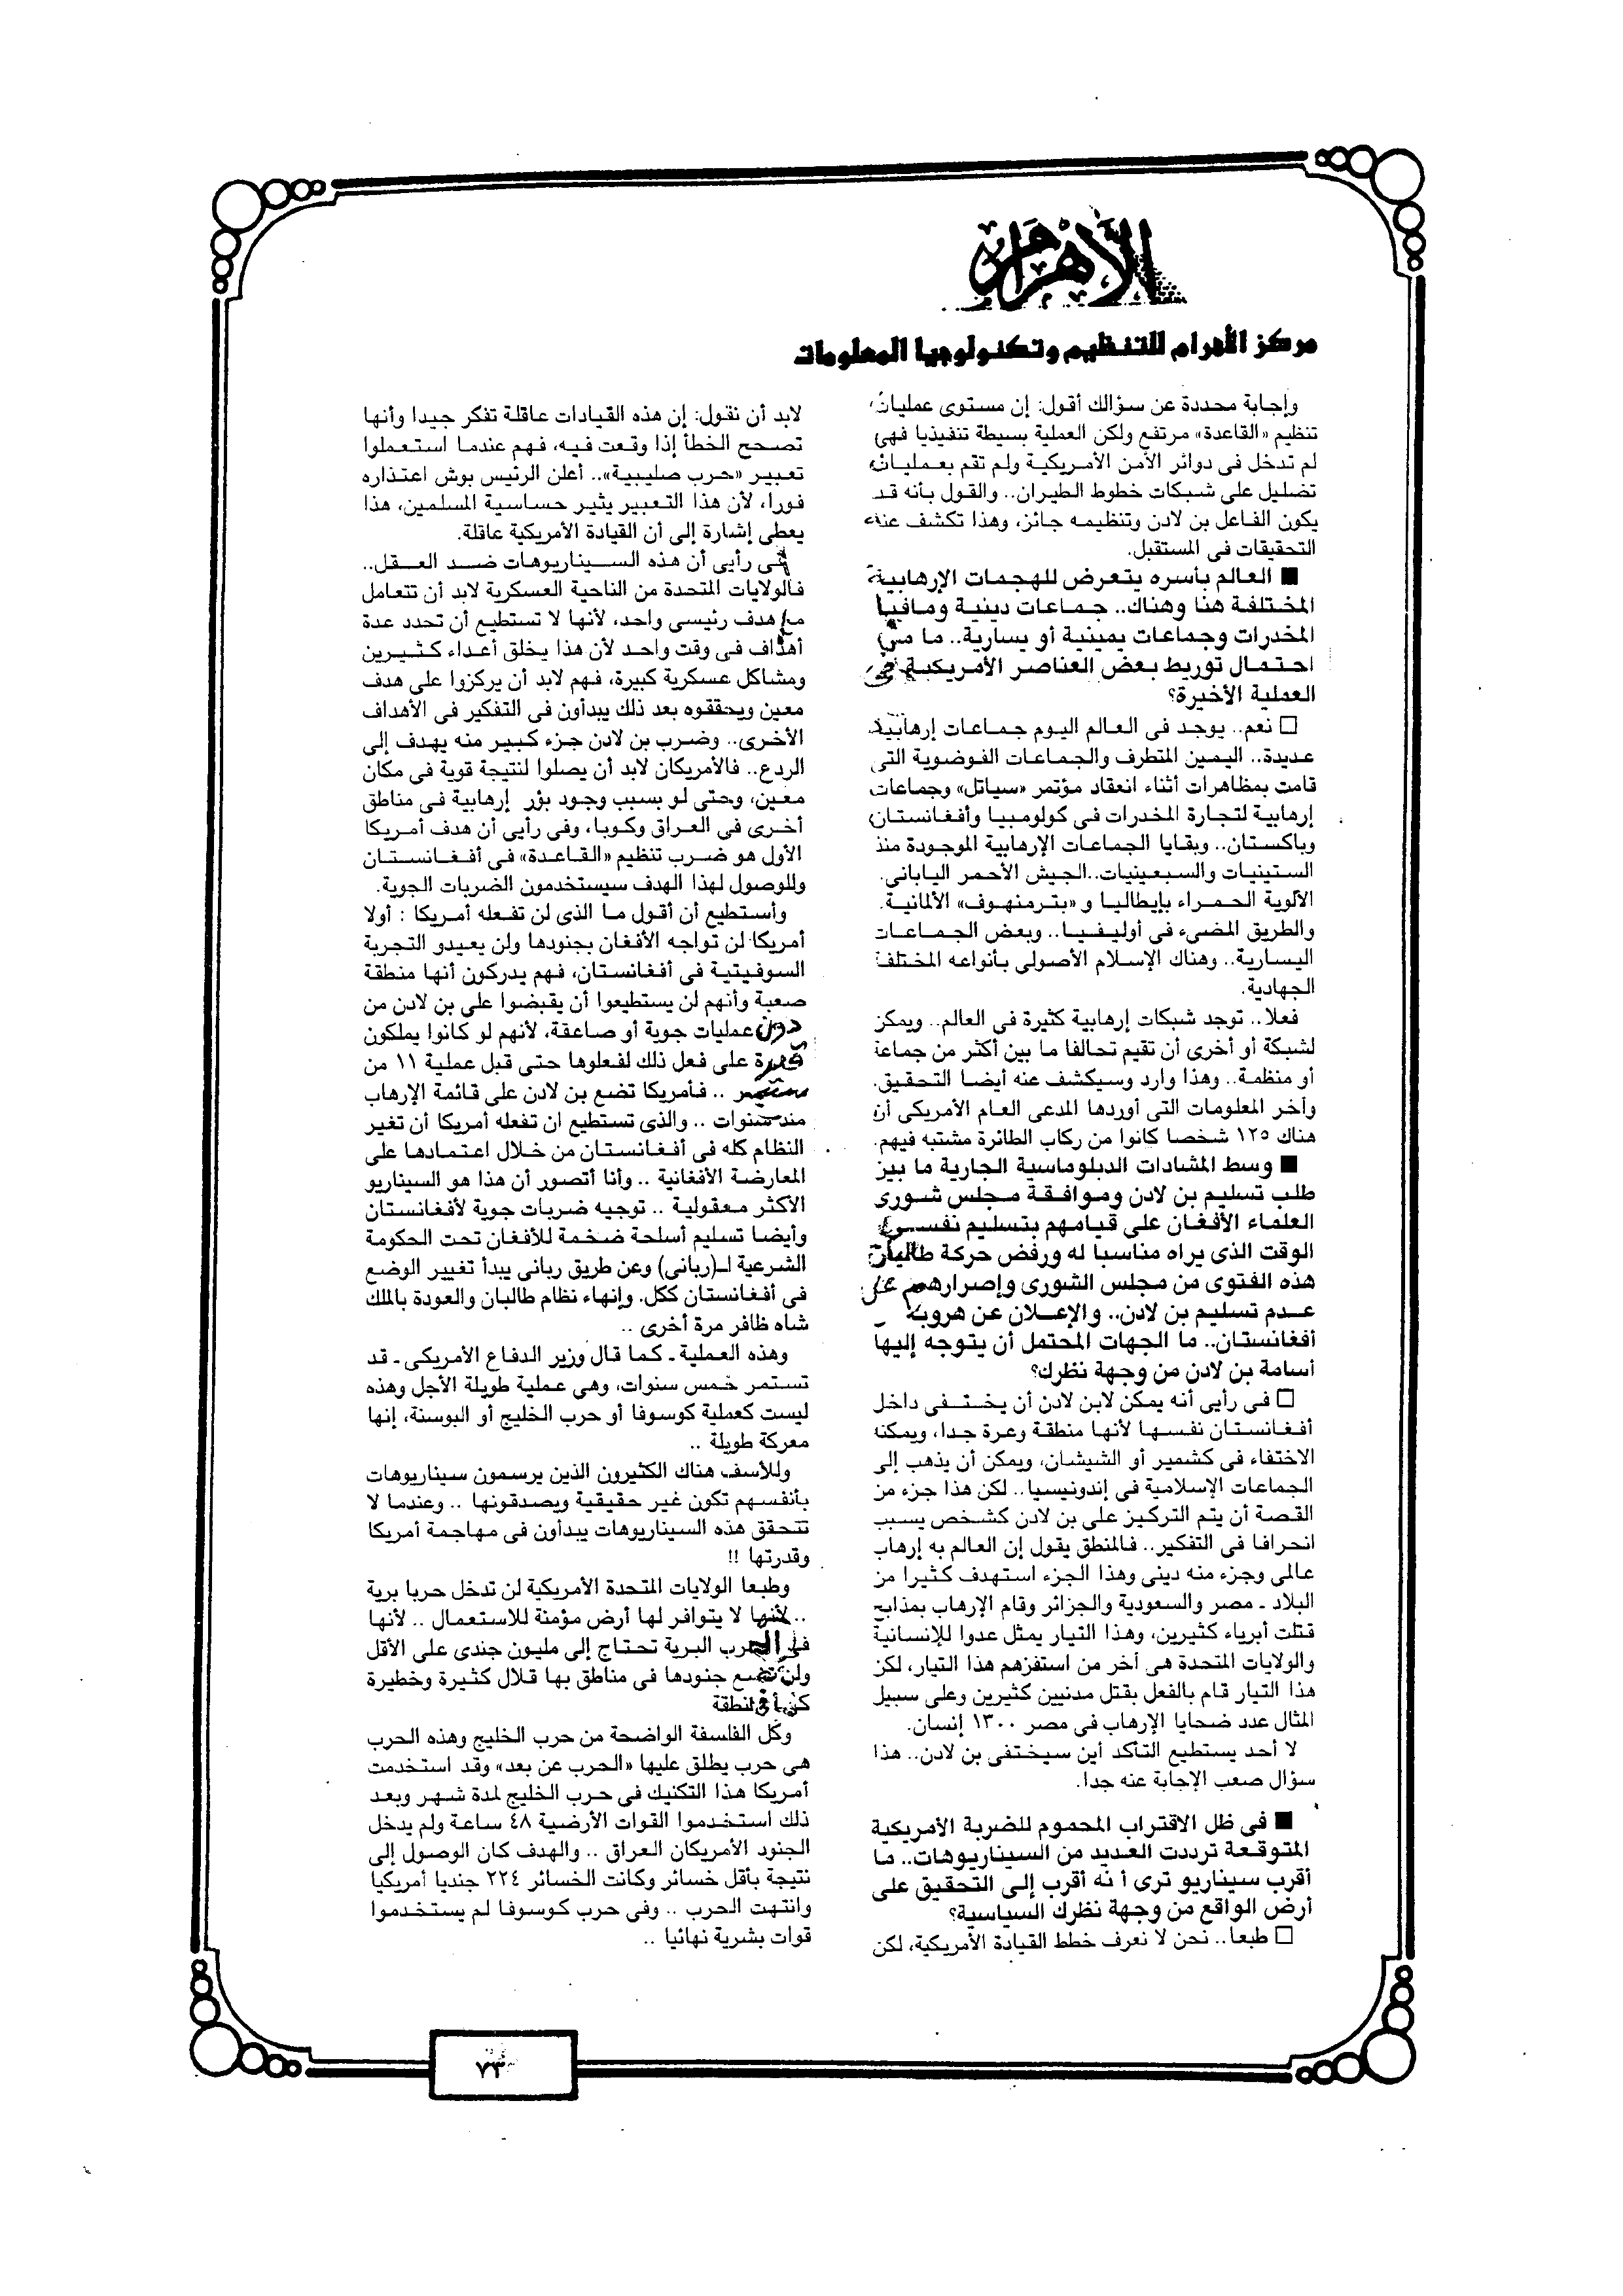 الأهرام
مركز الأهرام للتنظيم وتكنولوجيا المعلومات
وإجابة محددة عن سؤالك أقول: إن مستوى عمليات
تنظيم «القاعدة» مرتفع ولكن العملية بسيطة تنفيذيا فهى
لم تدخل فى دوائر الأمن الأمريكية ولم تقم بعمليات
تضليل على شبكات خطوط الطيران.. والقول بأنه قد
يكون الفاعل بن لادن وتنظيمه جائز، وهذا تكشف عنه
التحقيقات فى المستقبل.
■ العالم بأسره يتعرض للهجمات الإرهابية
المختلفة هنا وهناك.. جماعات دينية ومافيا
المخدرات وجماعات يمينية أو يسارية.. ما مدى
احتمال توريط بعض العناصر الأمريكية فى
العملية الأخيرة؟
□ نعم.. يوجد فى العالم اليوم جماعات إرهابية
عديدة.. اليمين المتطرف والجماعات الفوضوية التى
قامت بمظاهرات أثناء انعقاد مؤتمر «سياتل» وجماعات
إرهابية لتجارة المخدرات فى كولومبيا وأفغانستان
وباكستان.. وبقايا الجماعات الإرهابية الموجودة منذ
الستينيات والسبعينيات..الجيش الأحمر اليابانى.
الألوية الحمراء بإيطاليا و «بترمنهوف» الألمانية.
والطريق المضىء فى أوليفيا.. وبعض الجماعات
اليسارية.. وهناك الإسلام الأصولى بأنواعه المختلفة
الجهادية.
فعلا.. توجد شبكات إرهابية كثيرة فى العالم.. ويمكن
لشبكة أو أخرى أن تقيم تحالفا ما بين أكثر من جماعة
أو منظمة.. وهذا وارد وسيكشف عنه أيضا التحقيق.
وآخر المعلومات التى أوردها المدعى العام الأمريكى أن
هناك ١٢٥ شخصا كانوا من ركاب الطائرة مشتبه فيهم.
■ وسط المشادات الدبلوماسية الجارية ما بين
طلب تسليم بن لادن وموافقة مجلس شورى
العلماء الأفغان على قيامهم بتسليم نفسه
الوقت الذى يراه مناسبا له ورفض حركة طالبان
هذه الفتوى من مجلس الشورى وإصرارهم على
عدم تسليم بن لادن.. والإعلان عن هروبه
أفغانستان.. ما الجهات المحتمل أن يتوجه إليها
أسامة بن لادن من وجهة نظرك؟
□ فى رأيى أنه يمكن لابن لادن أن يختفى داخل
أفغانستان نفسها لأنها منطقة وعرة جدا، ويمكنه
الاختفاء فى كشمير أو الشيشان، ويمكن أن يذهب إلى
الجماعات الإسلامية فى إندونيسيا.. لكن هذا جزء من
القصة أن يتم التركيز على بن لادن كشخص يسبب
انحرافا فى التفكير.. فالمنطق يقول إن العالم به إرهاب
عالمى وجزء منه دينى وهذا الجزء استهدف كثيرا من
البلاد ـ مصر والسعودية والجزائر وقام الإرهاب بمذابح
قتلت أبرياء كثيرين، وهذا التيار يمثل عدوا للإنسانية
والولايات المتحدة هى آخر من استفزهم هذا التيار، لكن
هذا التيار قام بالفعل بقتل مدنيين كثيرين وعلى سبيل
المثال عدد ضحايا الإرهاب فى مصر ١٣٠٠ إنسان.
لا أحد يستطيع التأكد أين سيختفى بن لادن.. هذا
سؤال صعب الإجابة عنه جدا.
■ فى ظل الاقتراب المحموم للضربة الأمريكية
المتوقعة ترددت العديد من السيناريوهات.. ما
أقرب سيناريو ترى أنه أقرب إلى التحقيق على
أرض الواقع من وجهة نظرك السياسية؟
□ طبعا.. نحن لا نعرف خطط القيادة الأمريكية، لكن
لابد أن نقول: إن هذه القيادات عاقلة تفكر جيدا وأنها
تصحح الخطأ إذا وقعت فيه، فهم عندما استعملوا
تعبير «حرب صليبية».. أعلن الرئيس بوش اعتذاره
فورا، لأن هذا التعبير يثير حساسية المسلمين، هذا
يعطى إشارة إلى أن القيادة الأمريكية عاقلة.
فى رأيى أن هذه السيناريوهات ضد العقل..
فالولايات المتحدة من الناحية العسكرية لابد أن تتعامل
مع هدف رئيسى واحد، لأنها لا تستطيع أن تحدد عدة
أهداف فى وقت واحد لأن هذا يخلق أعداء كثيرين
ومشاكل عسكرية كبيرة، فهم لابد أن يركزوا على هدف
معين ويحققوه بعد ذلك يبدأون فى التفكير فى الأهداف
الأخرى.. وضرب بن لادن جزء كبير منه يهدف إلى
الردع.. فالأمريكان لابد أن يصلوا لنتيجة قوية فى مكان
معين، وحتى لو بسبب وجود بؤر إرهابية فى مناطق
أخرى فى العراق وكوبا، وفى رأيى أن هدف أمريكا
الأول هو ضرب تنظيم «القاعدة» فى أفغانستان
وللوصول لهذا الهدف سيستخدمون الضربات الجوية.
وأستطيع أن أقول ما الذى لن تفعله أمريكا : أولا
أمريكا لن تواجه الأفغان بجنودها ولن يعيدو التجربة
السوفيتية فى أفغانستان، فهم يدركون أنها منطقة
صعبة وأنهم لن يستطيعوا أن يقبضوا على بن لادن من
دون عمليات جوية أو صاعقة، لأنهم لو كانوا يملكون
قدرة على فعل ذلك لفعلوها حتى قبل عملية ١١ من
سبتمبر .. فأمريكا تضع بن لادن على قائمة الإرهاب
منذ سنوات .. والذى تستطيع ان تفعله أمريكا أن تغير
النظام كله فى أفغانستان من خلال اعتمادها على
المعارضة الأفغانية .. وأنا أتصور أن هذا هو السيناريو
الأكثر معقولية .. توجيه ضربات جوية لأفغانستان
وأيضا تسليم أسلحة ضخمة للأفغان تحت الحكومة
الشرعية لـ(ربانى) وعن طريق ربانى يبدأ تغيير الوضع
فى أفغانستان ككل. وإنهاء نظام طالبان والعودة بالملك
شاه ظافر مرة أخرى ..
وهذه العملية ـ كما قال وزير الدفاع الأمريكى ـ قد
تستمر خمس سنوات، وهى عملية طويلة الأجل وهذه
ليست كعملية كوسوفا أو حرب الخليج أو البوسنة، إنها
معركة طويلة ..
وللأسف هناك الكثيرون الذين يرسمون سيناريوهات
بأنفسهم تكون غير حقيقية ويصدقونها .. وعندما لا
تتحقق هذه السيناريوهات يبدأون فى مهاجمة أمريكا
وقدرتها !!
وطبعا الولايات المتحدة الأمريكية لن تدخل حربا برية
.. لأنها لا يتوافر لها أرض مؤمنة للاستعمال .. لأنها
فى الحرب البرية تحتاج إلى مليون جندى على الأقل
ولن تضع جنودها فى مناطق بها قلال كثيرة وخطيرة
وكل الفلسفة الواضحة من حرب الخليج وهذه الحرب
هى حرب يطلق عليها «الحرب عن بعد» وقد استخدمت
أمريكا هذا التكنيك فى حرب الخليج لمدة شهر وبعد
ذلك استخدموا القوات الأرضية ٤٨ ساعة ولم يدخل
الجنود الأمريكان العراق .. والهدف كان الوصول إلى
نتيجة بأقل خسائر وكانت الخسائر ٢٢٤ جنديا أمريكيا
وانتهت الحرب .. وفى حرب كوسوفا لم يستخدموا
قوات بشرية نهائيا ..
٧٣